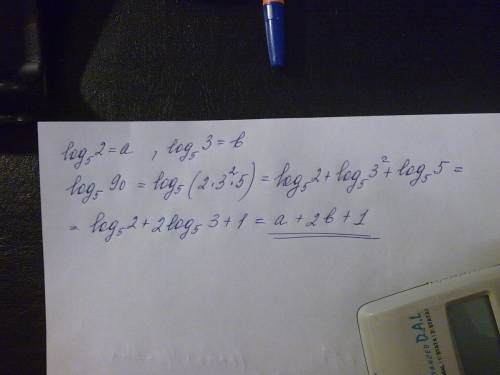 log₅2 = a , log₅3 = b
log₅90 = log₅(2·3²·5) = log₅2 + log₅3² + log₅5 =
= log₅2 + 2log₅3 + 1 = a + 2b + 1
D.A.L.